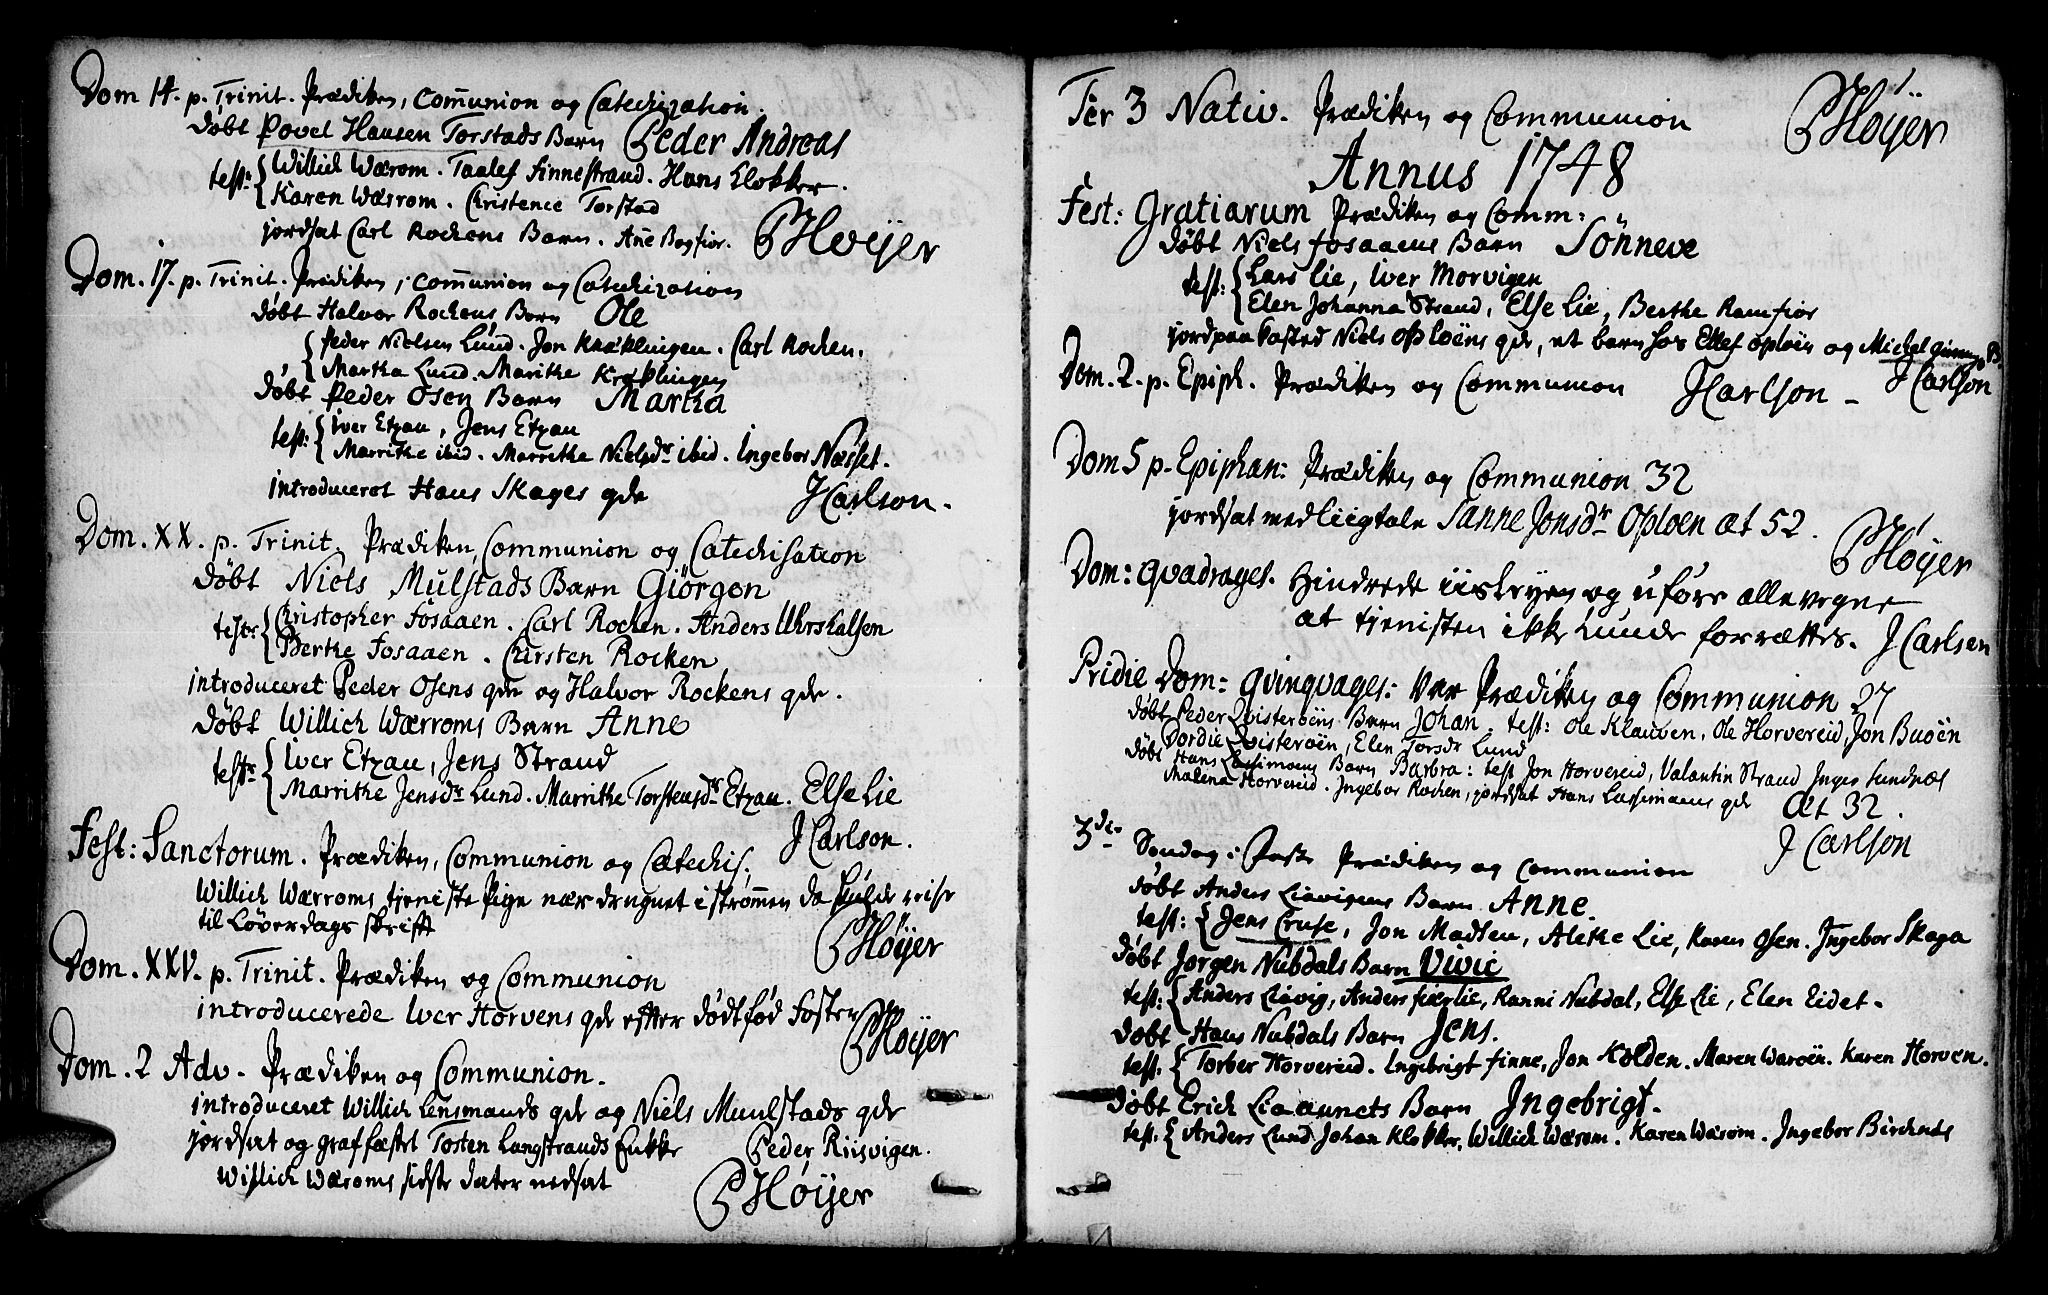 Dom 14. p. Trinit. Prædiken, Com̄union og Catechization.
Døbt Povel Hansen Torstads Barn Peder Andreas
test: Willich Wærom. Taalef Finnestrand. Hans Klokker.
Karen Wærom. Christence Torstad
jordsat Carl Rockens Barn. Añe Bogfior. PHøÿer
Dom. 17. p. Trinit. Prædiken, Com̄union og Catechization
døbt Halvor Rockens Barn Ole
Peder Nielsen Lund. Jon Kræklingen. Carl Rocken.
Martha Lund. Marithe Kræklingen
døbt Peder Osen Barn Martha
test: Iver Etzau, Jens Etzau
Marrithe ibid. Marrethe Nielsdr ibid. Ingebor Næsset.
introduceret Hans Skages qde JCarlson.
Dom. XX. p. Trinit. Prædiken, Communion og Catechisation
døbt Niels Mulstads Barn Giörgen
Christopher Fosaaen. Carl Rocken. Anders
Berthe Fosaaen. Kirsten Rocken
introduceret Peder Osens qde og Halvor Rockens qde.
døbt Willich Wærroms Barn Anne
test: Iver Etzau, Jens Strand
Marrithe Jensdr Lund. Marrithe Torstensdr Etzau. Else Lie
JCarlson.
Fest: Sanctorum. Prædiken, Communion og Catechis:
Willich Wærroms tjeniste Pige nær drugnet i strømmen da skulde reise
til Løverdags skrift
PHøÿer
Dom. XXV. p. Trinit. Prædiken og Communion
introducerede Iver Horvens qde efter dødtfød Foster
PHøÿer
Dom. 2 Adv. Prædiken og Communion.
introduceret Willich Lensmands qde og Niels Muulstads qde
jordsat og graffæstet Tosten Langstrands Enkke Peder Riisvigen.
Willich Wæroms sidste dater nedsat
PHøÿer
Fer 3 Nativ. Prædiken og Communion PHøÿer
Annus 1748
Fest: Gratiarum Prædiken og Comm:
døbt Niels Fosaaens Barn Sönneve
test: Lars Lie, Iver Morvigen
Elen Johanna Strand, Else Lie, Berthe Ramfior
jordpaakasted Niels Oploëns qde, et barn hos Ellef Oploën og Michel
Dom. 2. p. Epiph. Prædiken og Communion JCarlson – JCarlson
Dom 5 p. Epiphan: Prædiken og Communion 32
jordsat med Liigtale Sanne Jonsdr Oploen æt 52.
PHøÿer
Dom: Qvadrages. Hindrede iiskryen og uføre allevegne
at tjenisten ikke kunde forrættes. JCarlsen
Pridie Dom: Qvinqvages: var Prædiken og Communion 27
døbt Peder Qvisterøens Barn Johan. test: Ole Klauven, Ole Horvereid, Jon Buöen
Dordie Qvisterøen, Elen Torsdr Lund
døbt Hans Lassimons Barn Barbra: test Jon Horvereid, Valantin Strand Inger Sundnæs
Malena Horvereid. Ingebor Rocken, jordsat Hans Lassemans qde æt 32.
JCarlson
3die Søndag i Faste Prædiken og communion
døbt Anders Liavigens Barn Anne.
test: Jens Cruse, Jon Madsen, Alethe Lie, Karen Osen. Ingebor Skaga
døbt Jorgen Nubdals Barn Vivic
test: Anders Liavig, Anders Fierlie, Ranni Nubdal, Else Lie, Elen Eidet.
døbt Hans Nubdals Barn Jens.
test: Torber Horvereid. Ingebrigt Finne, Jon Kolden. Maren Waroën. Karen Horven.
døbt Erich Liaaunets Barn Ingebrigt.
test: Anders Lund Johan Klokker, Willich Wærom. Karen Wærom. Ingebor Birchnes